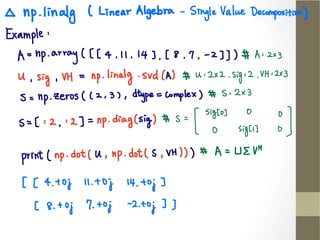 △ np.linalg ( Linear Algebra - Single Value Decomposition)
Example :
A = np.array ( [ [ 4 , 11 , 14 ] , [ 8 , 7 , -2 ] ] ) # A : 2x3
U , sig , VH = np.linalg . svd (A) # U : 2x2 , sig : 2 , VH : 2x3
S = np.zeros ( ( 2 , 3 ) , dtype = complex ) # S : 2x3
S = [ : 2 , : 2 ] = np.diag (sig) # S = [ sig[0] 0 0
0 sig[1] 0 ]
print ( np.dot ( U , np.dot ( S , VH ) ) ) # A = UΣV^H
[ [ 4.+0j 11.+0j 14.+0j ]
[ 8.+0j 7.+0j -2.+0j ] ]